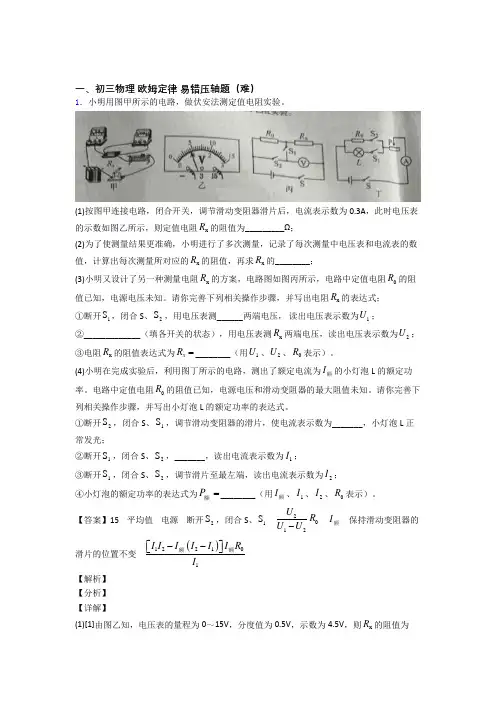 一、初三物理 欧姆定律 易错压轴题（难）
1．小明用图甲所示的电路，做伏安法测定值电阻实验。
(1)按图甲连接电路，闭合开关，调节滑动变阻器滑片后，电流表示数为 0.3A，此时电压表
的示数如图乙所示，则定值电阻 Rx 的阻值为_________Ω；
(2)为了使测量结果更准确，小明进行了多次测量，记录了每次测量中电压表和电流表的数
值，计算出每次测量所对应的 Rx 的阻值，再求 Rx 的________；
(3)小明又设计了另一种测量电阻 Rx 的方案，电路图如图丙所示，电路中定值电阻 R0 的阻
值已知，电源电压未知。请你完善下列相关操作步骤，并写出电阻 Rx 的表达式：
①断开 S1，闭合 S、S2，用电压表测______两端电压， 读出电压表示数为 U1；
②_____________（填各开关的状态），用电压表测 Rx 两端电压，读出电压表示数为 U2；
③电阻 Rx 的阻值表达式为 Rx = ________（用 U1、U2、R0 表示）。
(4)小明在完成实验后，利用图丁所示的电路，测出了额定电流为 I额 的小灯泡 L 的额定功
率。电路中定值电阻 R0 的阻值已知，电源电压和滑动变阻器的最大阻值未知。请你完善下
列相关操作步骤，并写出小灯泡 L 的额定功率的表达式。
①断开 S2，闭合 S、S1，调节滑动变阻器的滑片，使电流表示数为_______，小灯泡 L 正
常发光；
②断开 S1，闭合 S、S2，_______，读出电流表示数为 I1；
③断开 S1，闭合 S、S2，调节滑片至最左端，读出电流表示数为 I2；
④小灯泡的额定功率的表达式为 P额 = ________（用 I额、I1、I2、R0 表示）。
【答案】15 平均值 电源 断开 S2，闭合 S、S1 U2/(U1−U2) R0 I额 保持滑动变阻器的
滑片的位置不变 [I1I2−I额(I2−I1)]I额R0/I1
【解析】
【分析】
【详解】
(1)[1]由图乙知，电压表的量程为 0～15V，分度值为 0.5V，示数为 4.5V，则 Rx 的阻值为